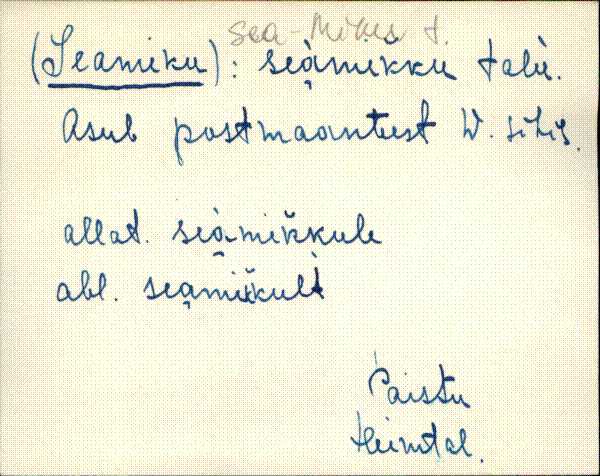 Sea-Mikus t.
(Seamiku): seạ̀mikku talu.
Asub postmaanteest W. sihis.
allat. seạ̀mikkule
abl. seạmikkult
Paistu
Heimtal.